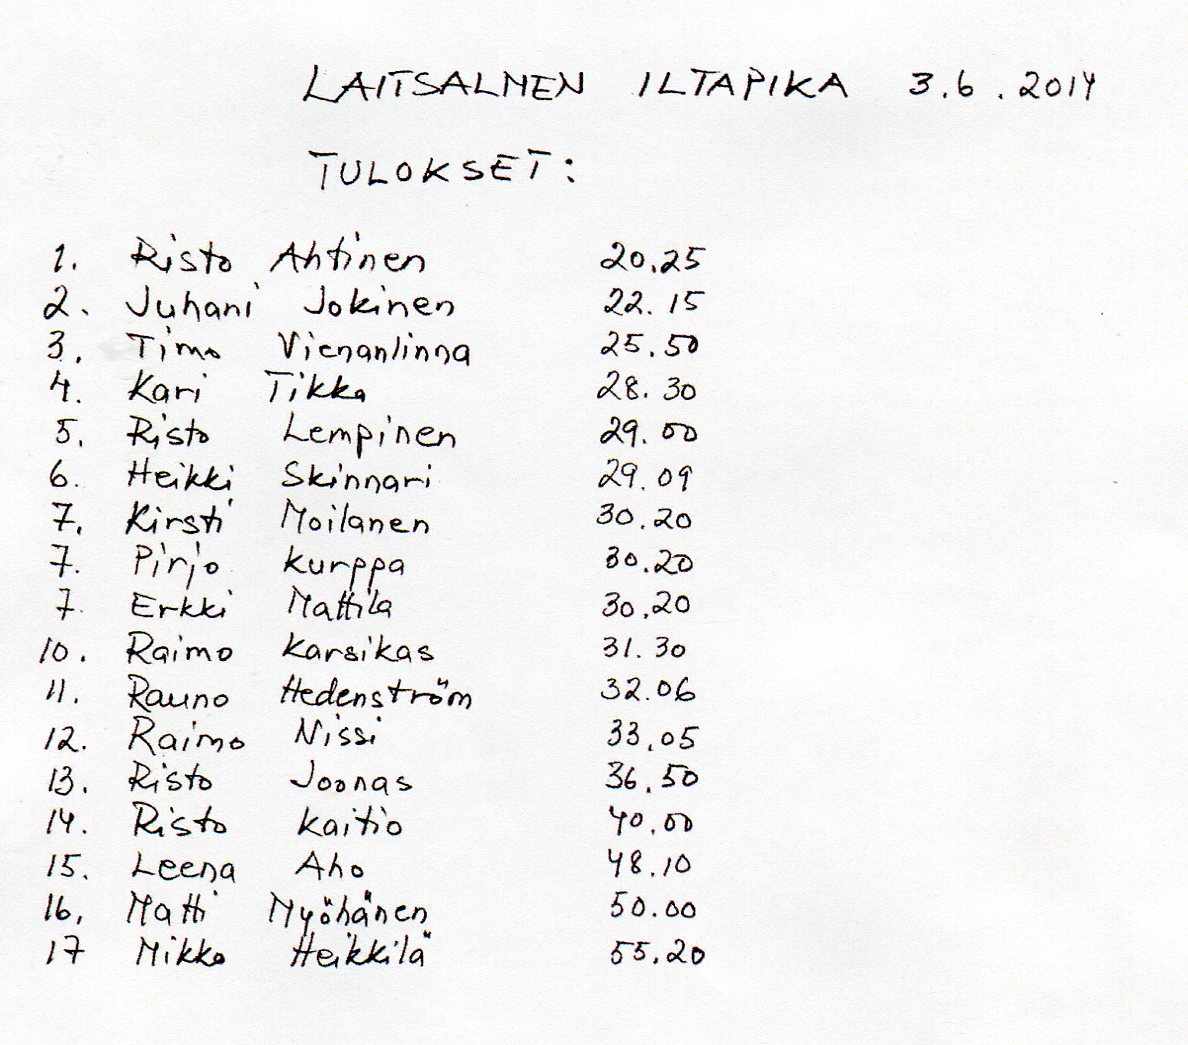 LAITSALMEN ILTAPIKA 3.6.2014
TULOKSET:
1. Risto Ahtinen 20.25
2. Juhani Jokinen 22.15
3. Timo Vienanlinna 25.50
4. Kari Tikka 28.30
5. Risto Lempinen 29.00
6. Heikki Skinnari 29.09
7. Kirsti Moilanen 30.20
7. Pirjo Kurppa 30.20
7. Erkki Mattila 30.20
10. Raimo Karsikas 31.30
11. Rauno Hedenström 32.06
12. Raimo Nissi 33.05
13. Risto Joonas 36.50
14. Risto Kaitio 40.00
15. Leena Aho 48.10
16. Matti Myöhänen 50.00
17 Mikko Heikkilä 55.20